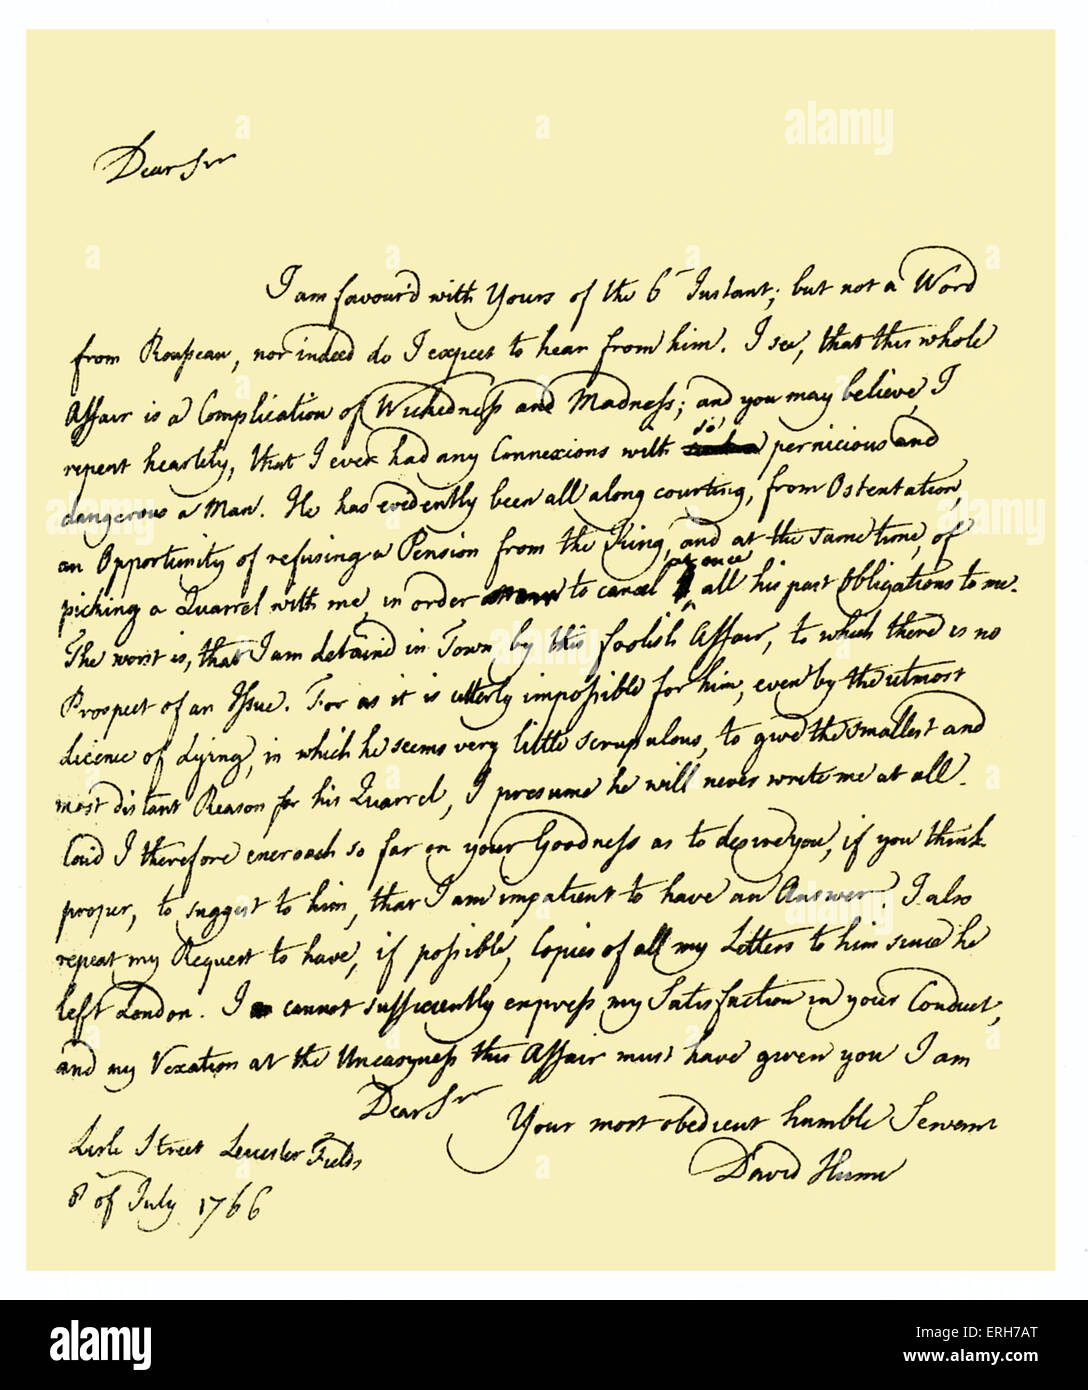 Dear Sir
I am favour'd with Yours of the 6 Instant; but not a Word
from Rousseau, nor indeed do I expect to hear from him. I see, that this whole
Affair is a Complication of Wickedness and Madness; and you may believe, I
repent heartily, that I ever had any Connexions with so pernicious and
dangerous a Man. He has evidently been all along courting, from Ostentation,
an Opportunity of refusing a Pension from the King, and at the same time, of
picking a Quarrel with me, in order to cancel at once all his past Obligations to me.
The worst is, that I am detain'd in Town by this foolish Affair, to which there is no
Prospect of an Issue. For as it is utterly impossible for him, even by the utmost
Licence of Lying, in which he seems very little scrupulous, to give the smallest and
most distant Reason for his Quarrel, I presume he will never write me at all.
Coud I therefore encroach so far on your Goodness as to desire you, if you think
proper, to suggest to him, that I am impatient to have an Answer. I also
repeat my Request to have, if possible, Copies of all my Letters to him since he
left London. I cannot sufficiently express my Satisfaction in your Conduct,
and my Vexation at the Uneasyness this Affair must have given you I am
Dear Sir
Your most obedient humble Servant
David Hume
Lisle Street Leicester Fields
8 of July 1766
alamy
Image ID: ERH7AT
www.alamy.com